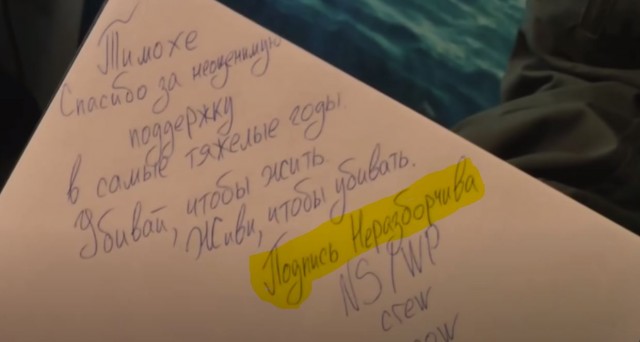 Тимохе
Спасибо за неоценимую
поддержку
в самые тяжелые годы.
Убивай, чтобы жить.
Живи, чтобы убивать.
Подпись Неразборчива
NS/WP
crew